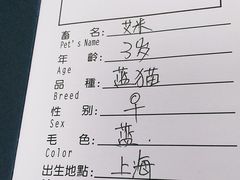 畜名: 艾米
Pet's Name
年齡: 3岁
Age
品種: 蓝猫
Breed
性别: ♀
Sex
毛色: 蓝
Color
出生地點: 上海